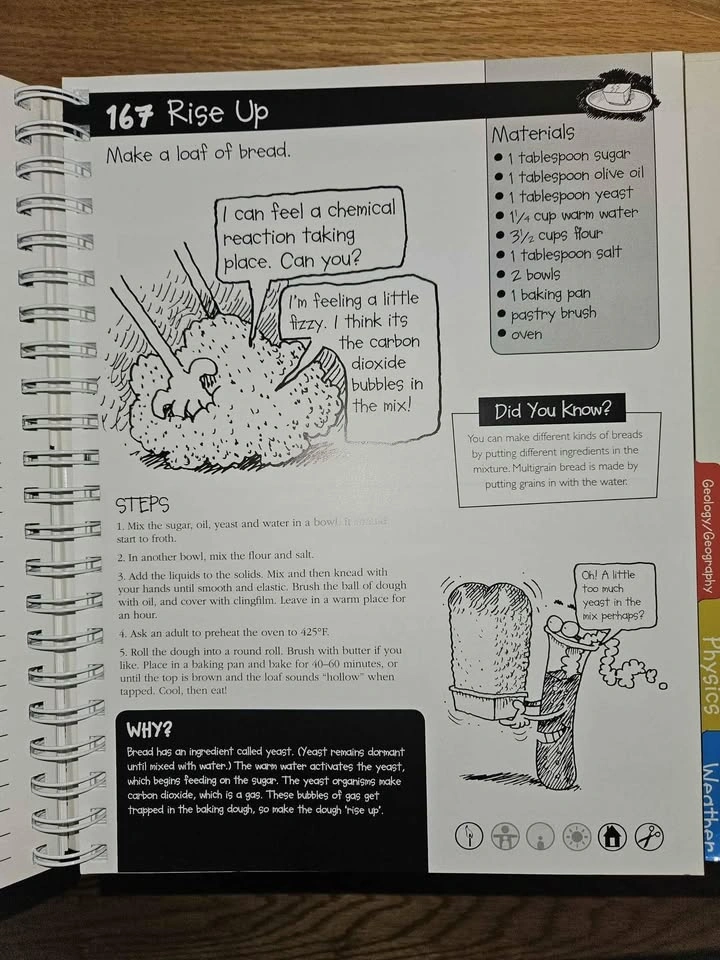 167 Rise Up
Make a loaf of bread.
Materials
• 1 tablespoon sugar
• 1 tablespoon olive oil
• 1 tablespoon yeast
• 1 1/4 cup warm water
• 3 1/2 cups flour
• 1 tablespoon salt
• 2 bowls
• 1 baking pan
• pastry brush
• oven
I can feel a chemical
reaction taking
place. Can you?
I'm feeling a little
fizzy. I think its
the carbon
dioxide
bubbles in
the mix!
Did You Know?
You can make different kinds of breads
by putting different ingredients in the
mixture. Multigrain bread is made by
putting grains in with the water.
STEPS
1. Mix the sugar, oil, yeast and water in a bowl. It should
start to froth.
2. In another bowl, mix the flour and salt.
3. Add the liquids to the solids. Mix and then knead with
your hands until smooth and elastic. Brush the ball of dough
with oil, and cover with clingfilm. Leave in a warm place for
an hour.
4. Ask an adult to preheat the oven to 425°F.
5. Roll the dough into a round roll. Brush with butter if you
like. Place in a baking pan and bake for 40–60 minutes, or
until the top is brown and the loaf sounds "hollow" when
tapped. Cool, then eat!
Oh! A little
too much
yeast in the
mix perhaps?
WHY?
Bread has an ingredient called yeast. (Yeast remains dormant
until mixed with water.) The warm water activates the yeast,
which begins feeding on the sugar. The yeast organisms make
carbon dioxide, which is a gas. These bubbles of gas get
trapped in the baking dough, so make the dough 'rise up'.
Geology/Geography
Physics
Weather